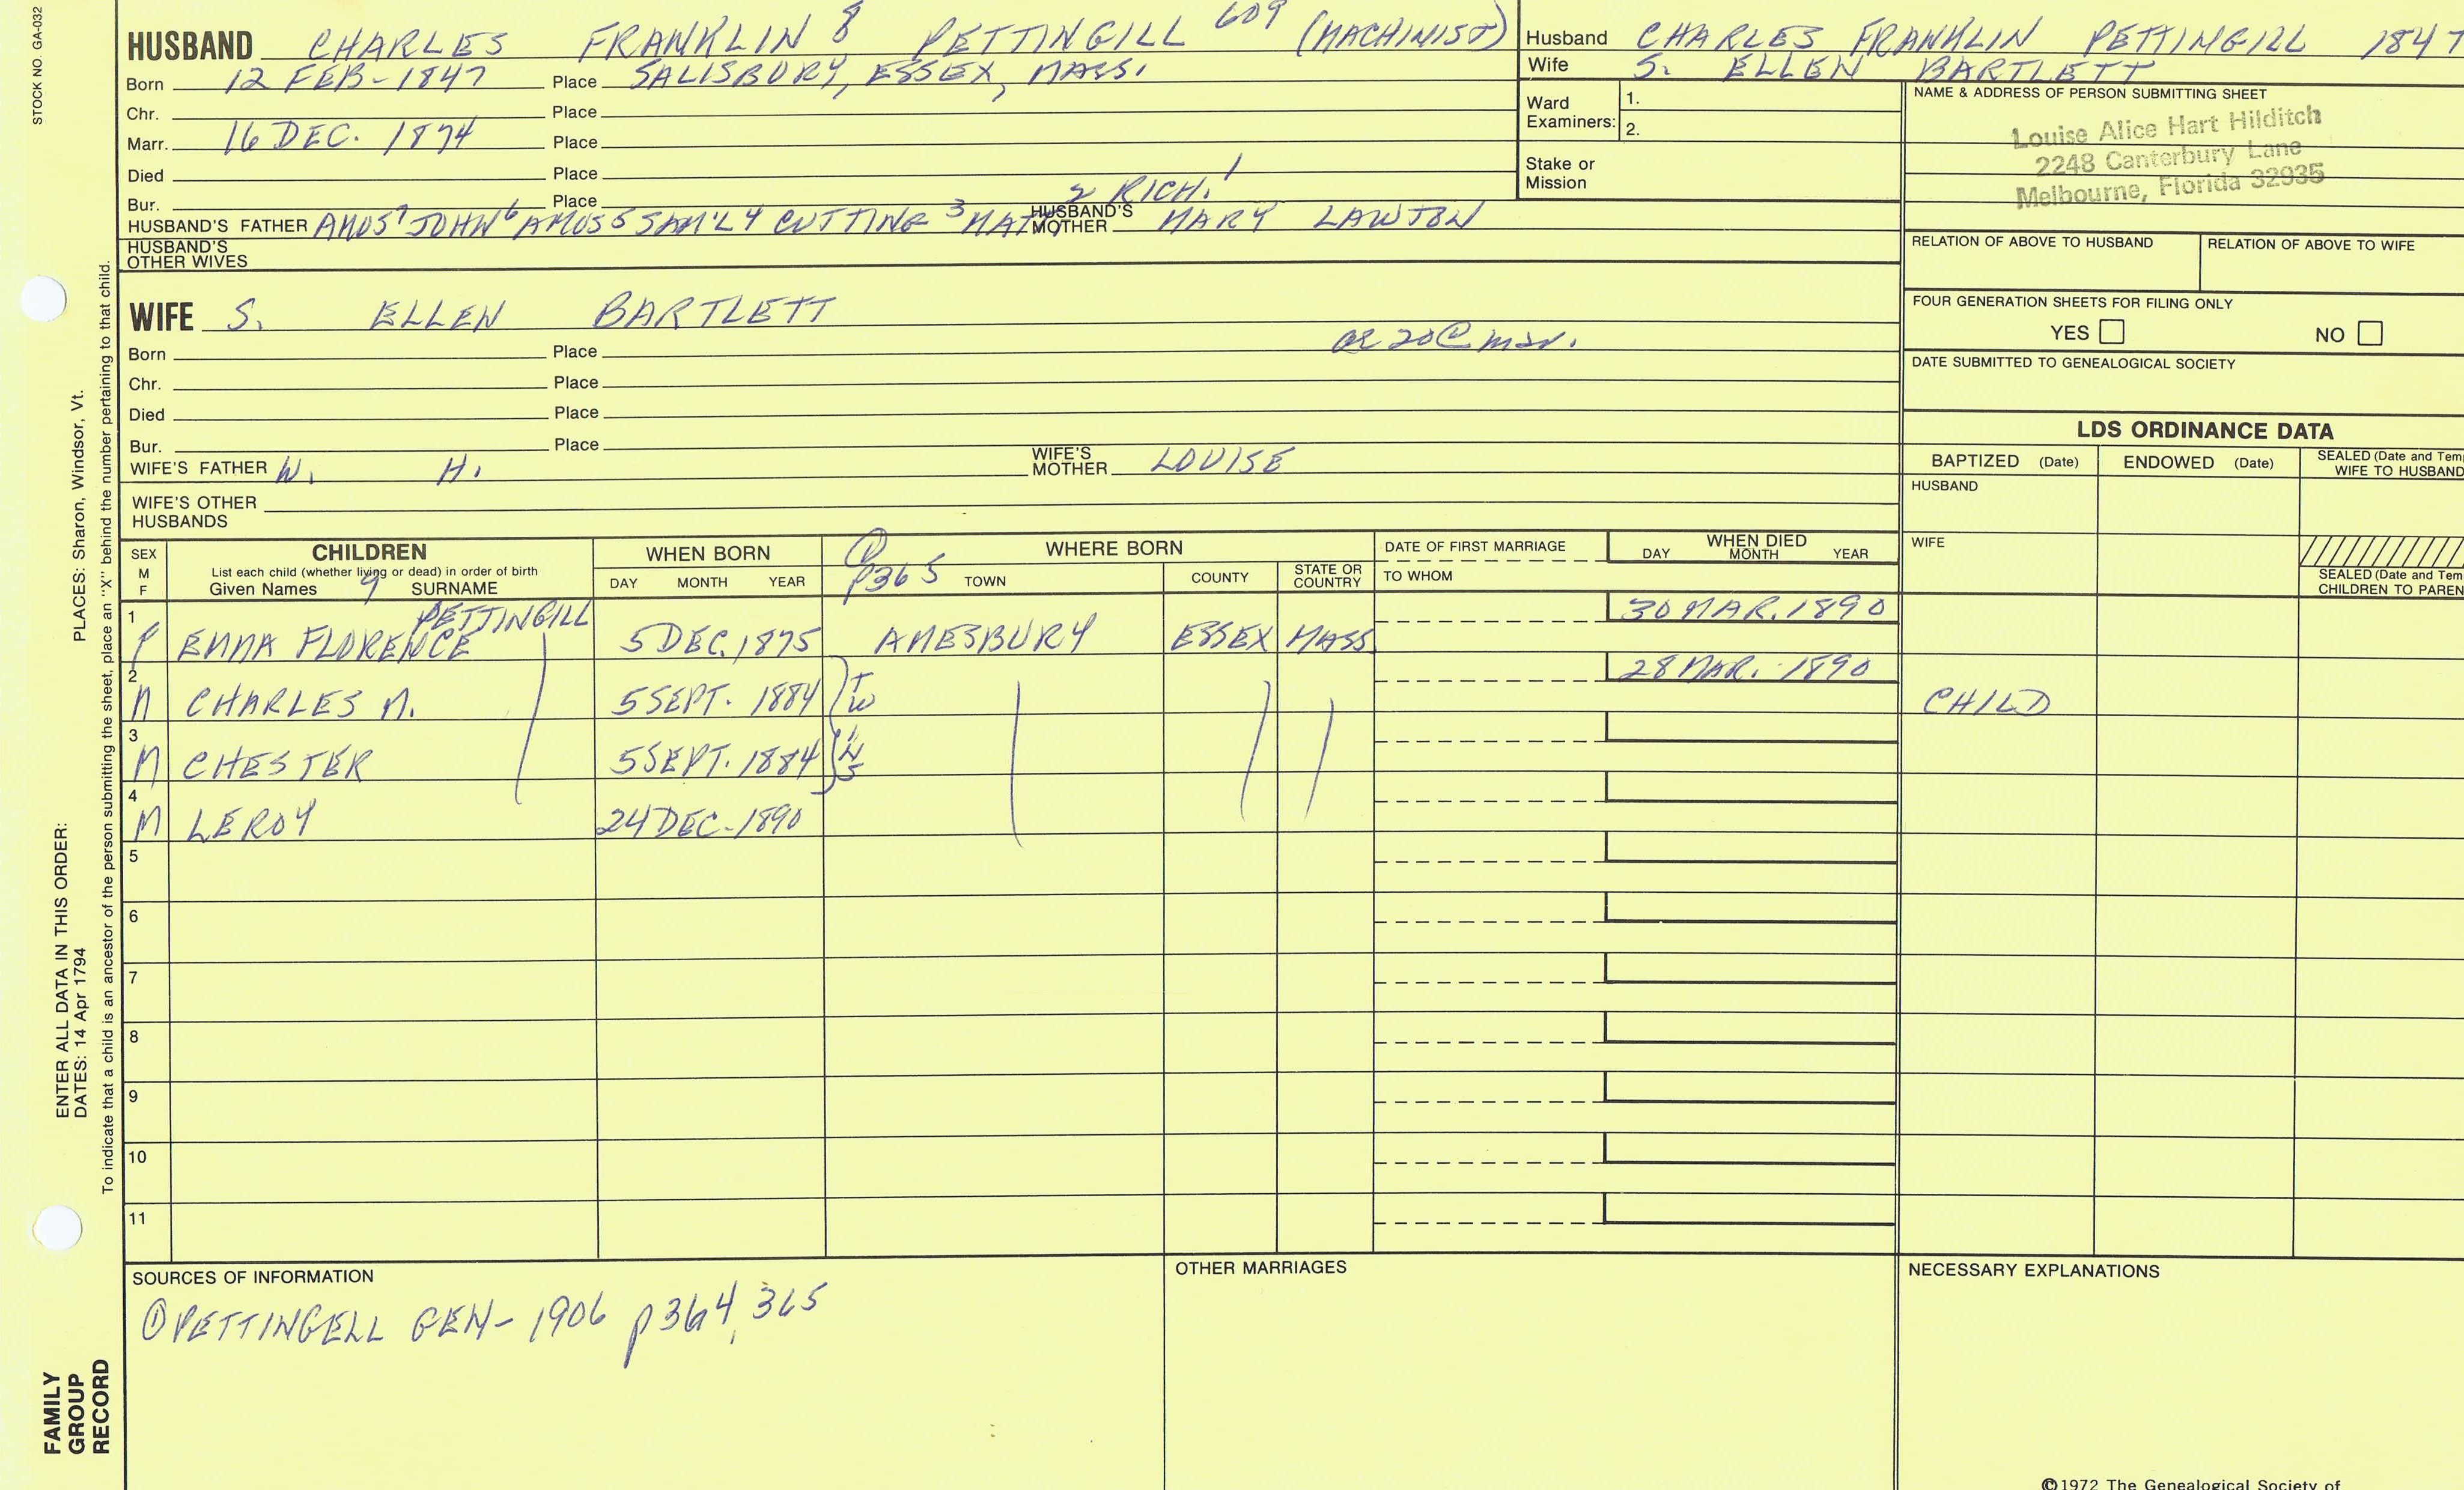 STOCK NO. GA-032
HUSBAND CHARLES FRANKLIN 8 PETTINGILL 609 (MACHINIST)
Born 12 FEB-1847 Place SALISBURY, ESSEX, MASS.
Chr. Place
Marr. 16 DEC. 1874 Place
Died Place
Bur. Place
2 RICH. 1
HUSBAND'S FATHER AMOS 7 JOHN 6 AMOS 5 SAM'L 4 CUTTING 3 HUSBAND'S MOTHER MARY LAWTON
HUSBAND'S OTHER WIVES
WIFE S. ELLEN BARTLETT
Born Place
Chr. Place
Died Place
Bur. Place
WIFE'S FATHER W. H. WIFE'S MOTHER LOUISE
WIFE'S OTHER HUSBANDS
Husband CHARLES FRANKLIN PETTINGILL 1847
Wife S. ELLEN BARTLETT
Ward Examiners: 1.
2.
Stake or Mission
NAME & ADDRESS OF PERSON SUBMITTING SHEET
Louise Alice Hart Hilditch
2248 Canterbury Lane
Melbourne, Florida 32935
RELATION OF ABOVE TO HUSBAND RELATION OF ABOVE TO WIFE
FOUR GENERATION SHEETS FOR FILING ONLY
YES NO
DATE SUBMITTED TO GENEALOGICAL SOCIETY
LDS ORDINANCE DATA
BAPTIZED (Date) ENDOWED (Date) SEALED (Date and Tem
WIFE TO HUSBAND
HUSBAND
WIFE
SEALED (Date and Tem
CHILDREN TO PAREN
SEX M F
CHILDREN
List each child (whether living or dead) in order of birth
Given Names 9 SURNAME
WHEN BORN
DAY MONTH YEAR
① P365
WHERE BORN
TOWN COUNTY STATE OR COUNTRY
DATE OF FIRST MARRIAGE
TO WHOM
WHEN DIED
DAY MONTH YEAR
PETTINGILL 30 MAR. 1890
1 F EMMA FLORENCE 5 DEC. 1875 AMESBURY ESSEX MASS
28 MAR. 1890
2 M CHARLES M. 5 SEPT. 1884 TW CHILD
3 M CHESTER 5 SEPT. 1884 INS
4 M LEROY 24 DEC. 1890
5
6
7
8
9
10
11
SOURCES OF INFORMATION
① PETTINGELL GEN- 1906 p364, 365
OTHER MARRIAGES
NECESSARY EXPLANATIONS
©1972 The Genealogical Society of
PLACES: Sharon, Windsor, Vt.
ENTER ALL DATA IN THIS ORDER:
DATES: 14 Apr 1794
To indicate that a child is an ancestor of the person submitting the sheet, place an "X" behind the number pertaining to that child.
FAMILY
GROUP
RECORD